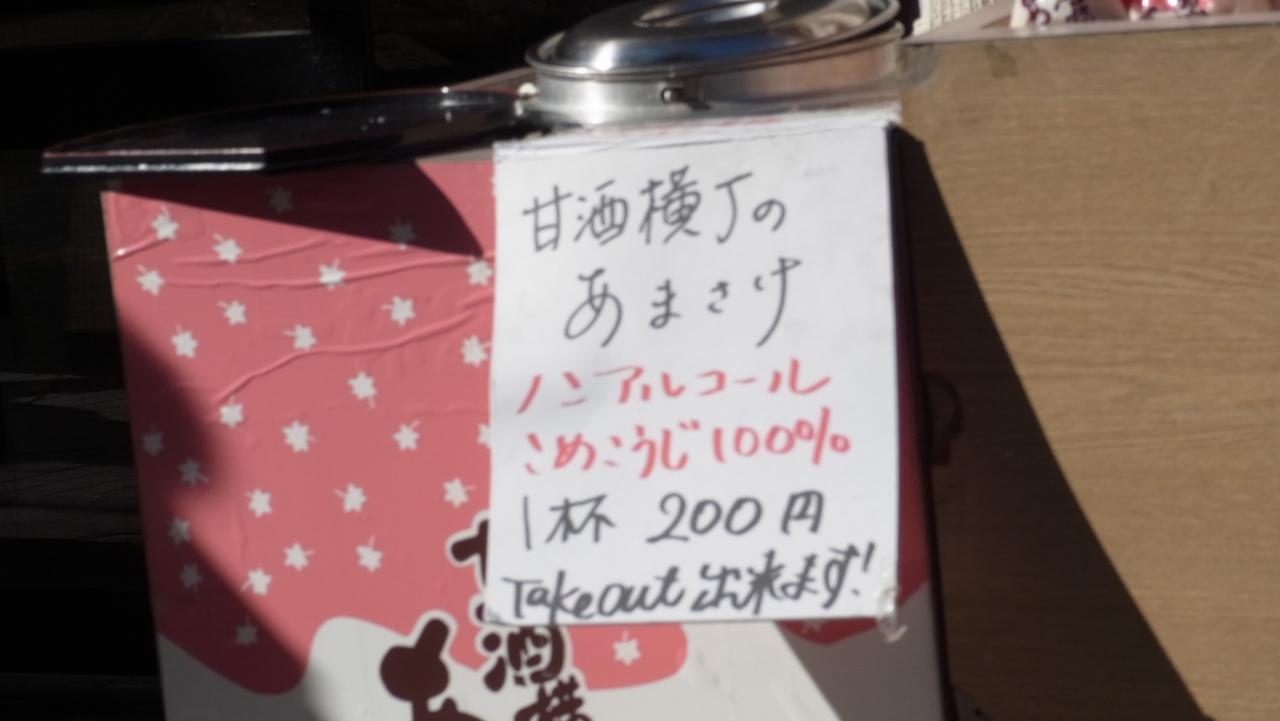 甘酒横丁の
あまさけ
ノンアルコール
こめこうじ100%
1杯 200円
Takeout出来ます!
甘酒横
あ